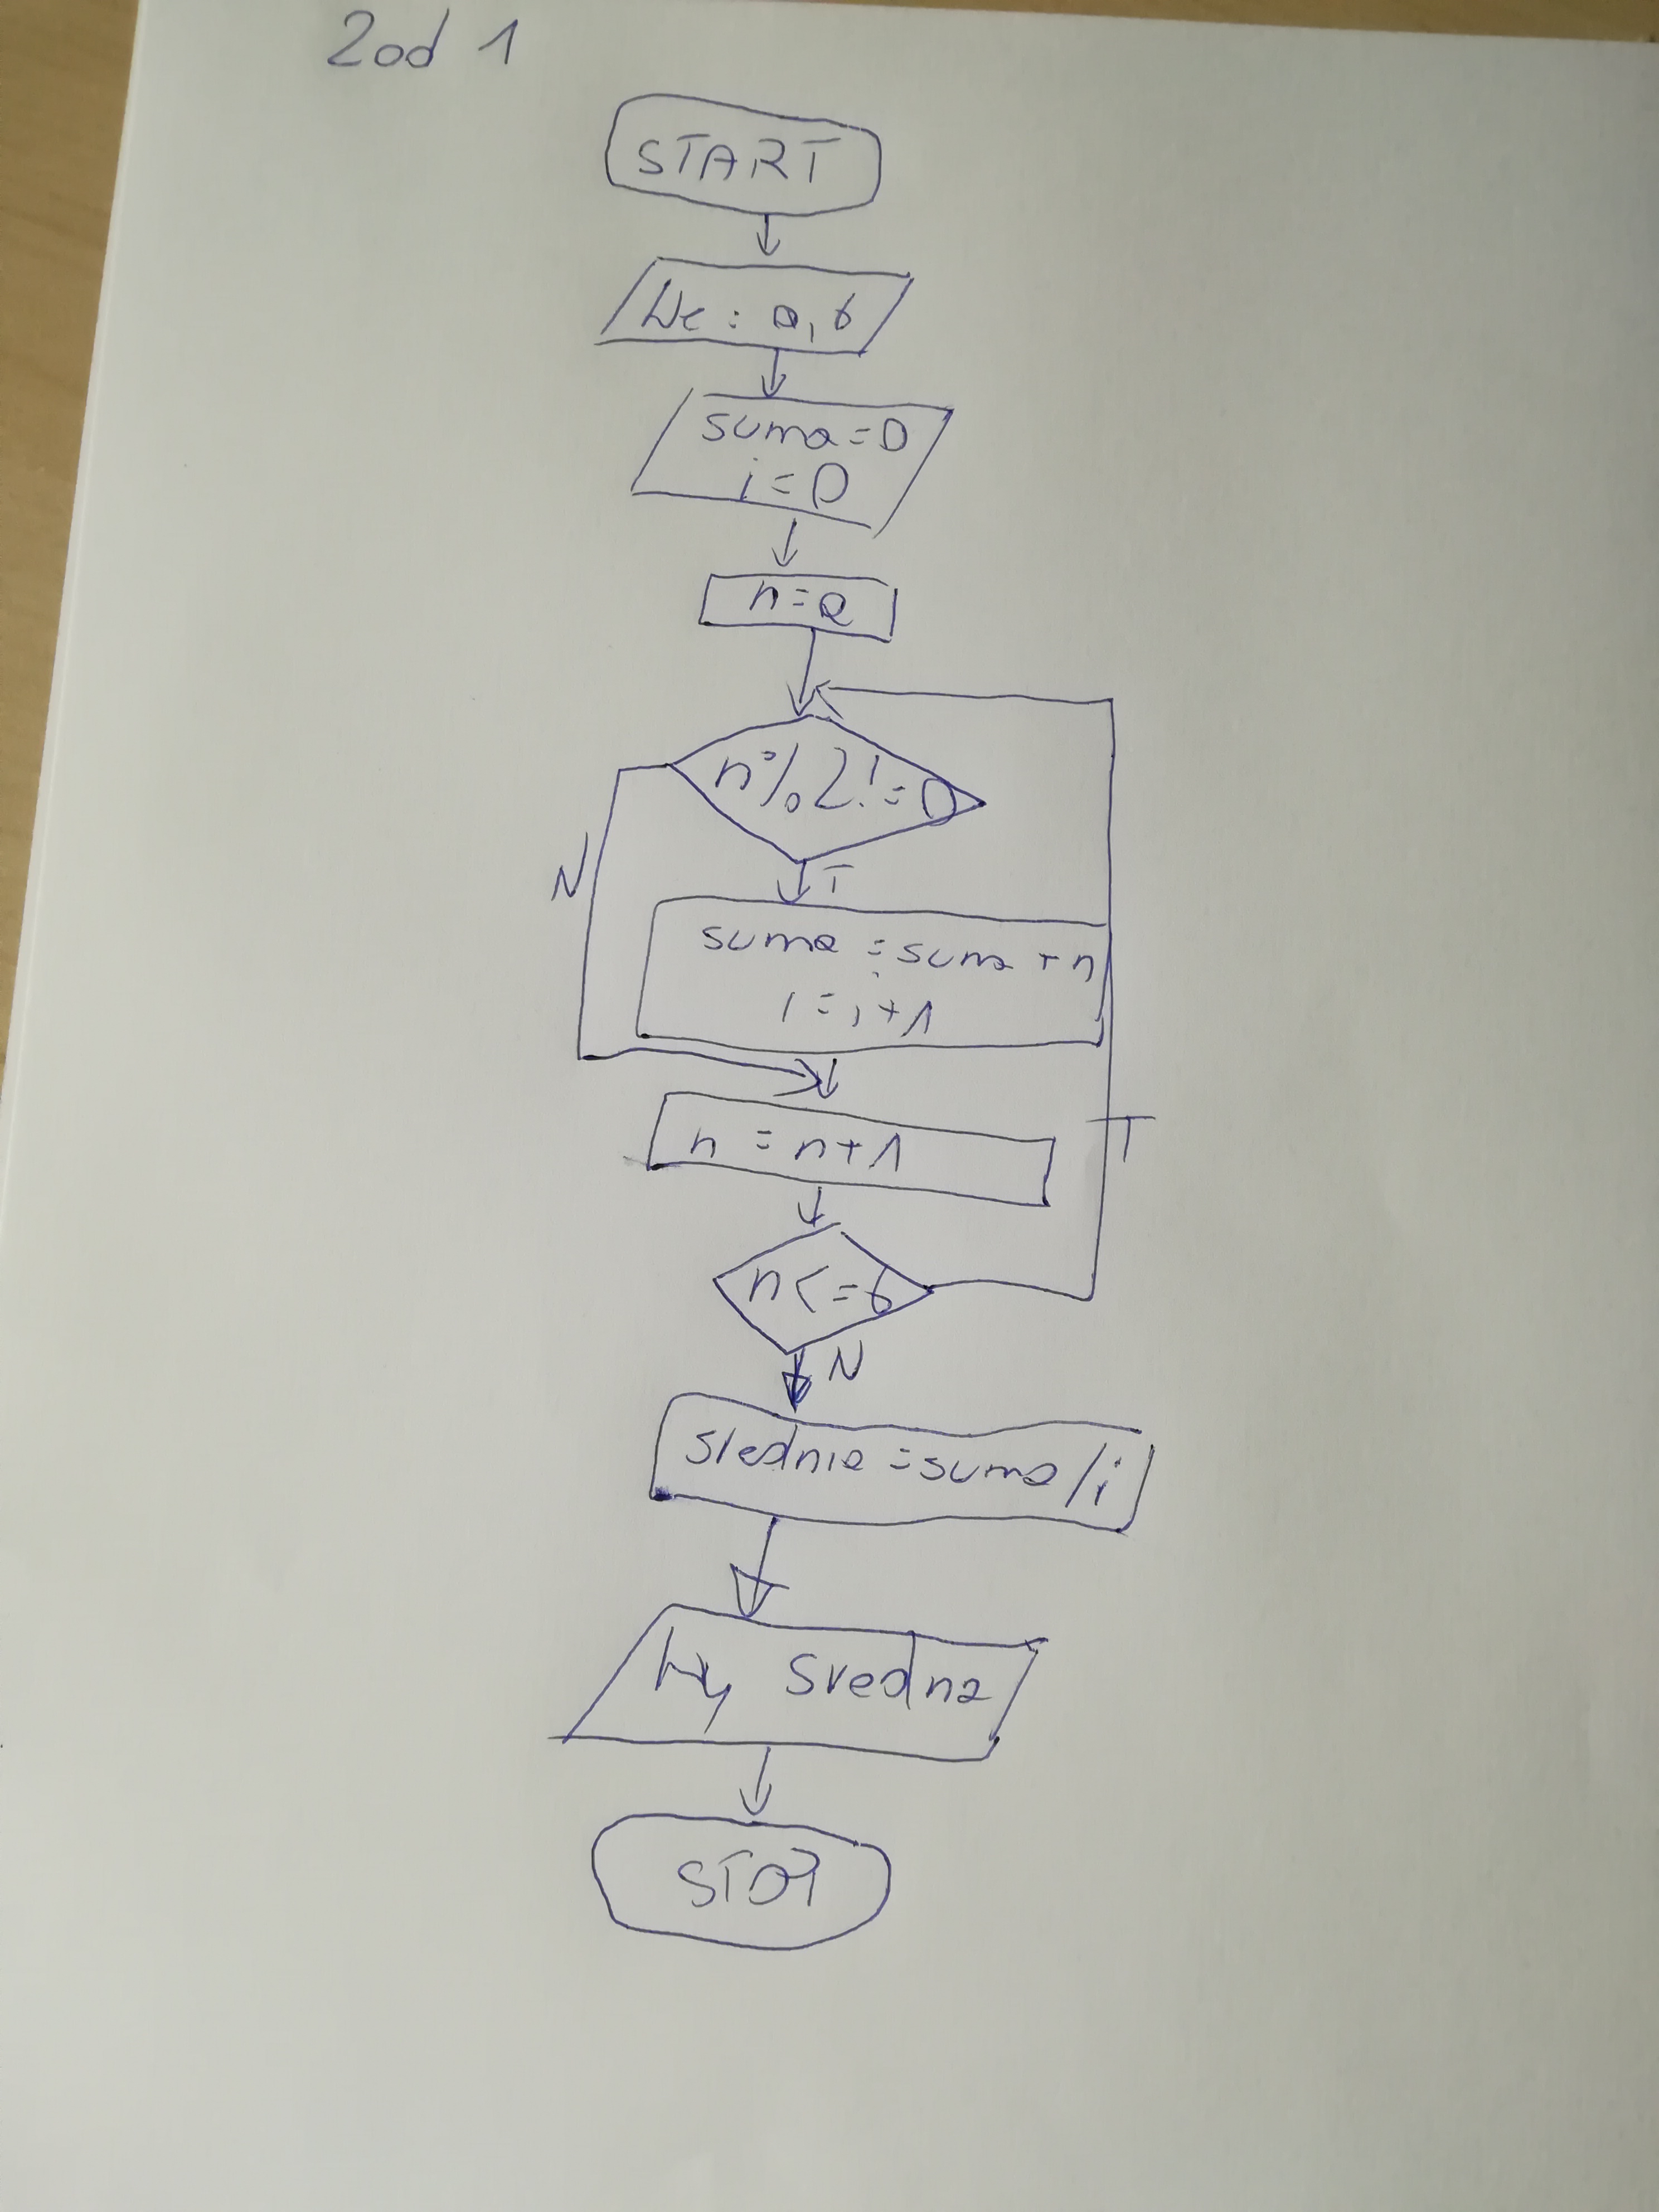 Zad 1
START
We: a, b
suma=0
i=0
n=a
n%2!=0
N
T
suma = suma + n
i = i + 1
n = n+1
T
n<=b
N
srednia = suma/i
Wy sredna
STOP